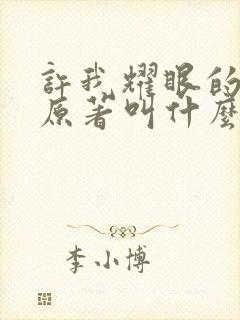 許我耀眼的
原著叫什麼
李小博